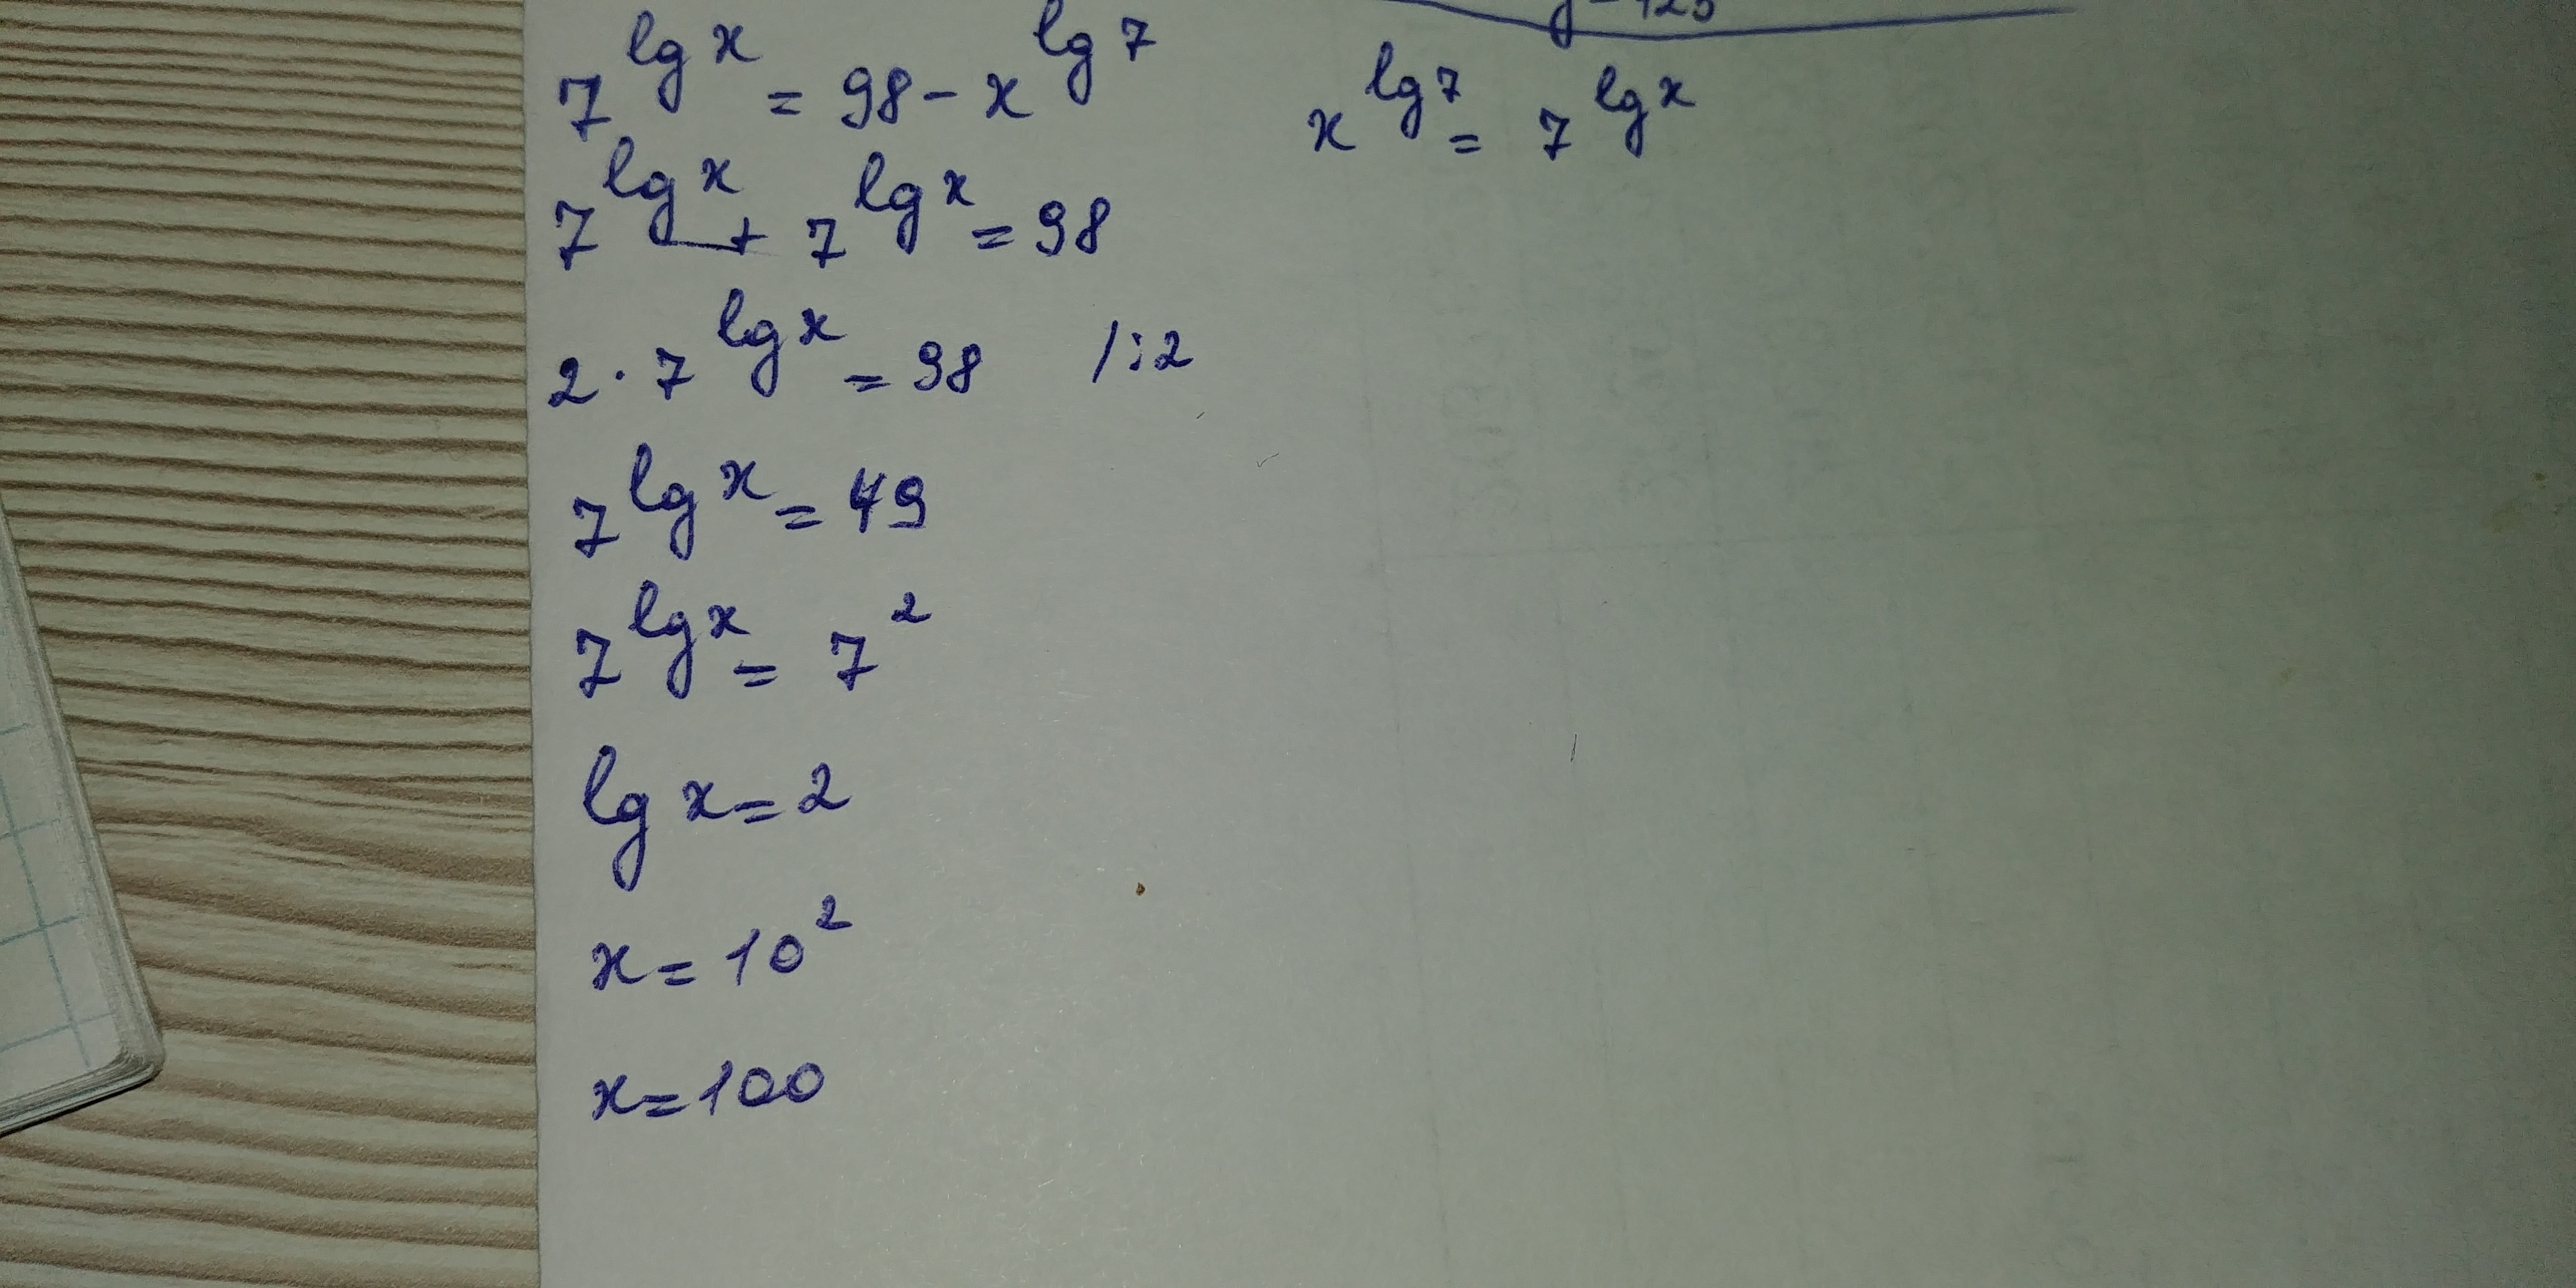 7^lg x = 98 - x^lg 7
x^lg 7 = 7^lg x
7^lg x + 7^lg x = 98
2 · 7^lg x = 98 /:2
7^lg x = 49
7^lg x = 7^2
lg x = 2
x = 10^2
x = 100